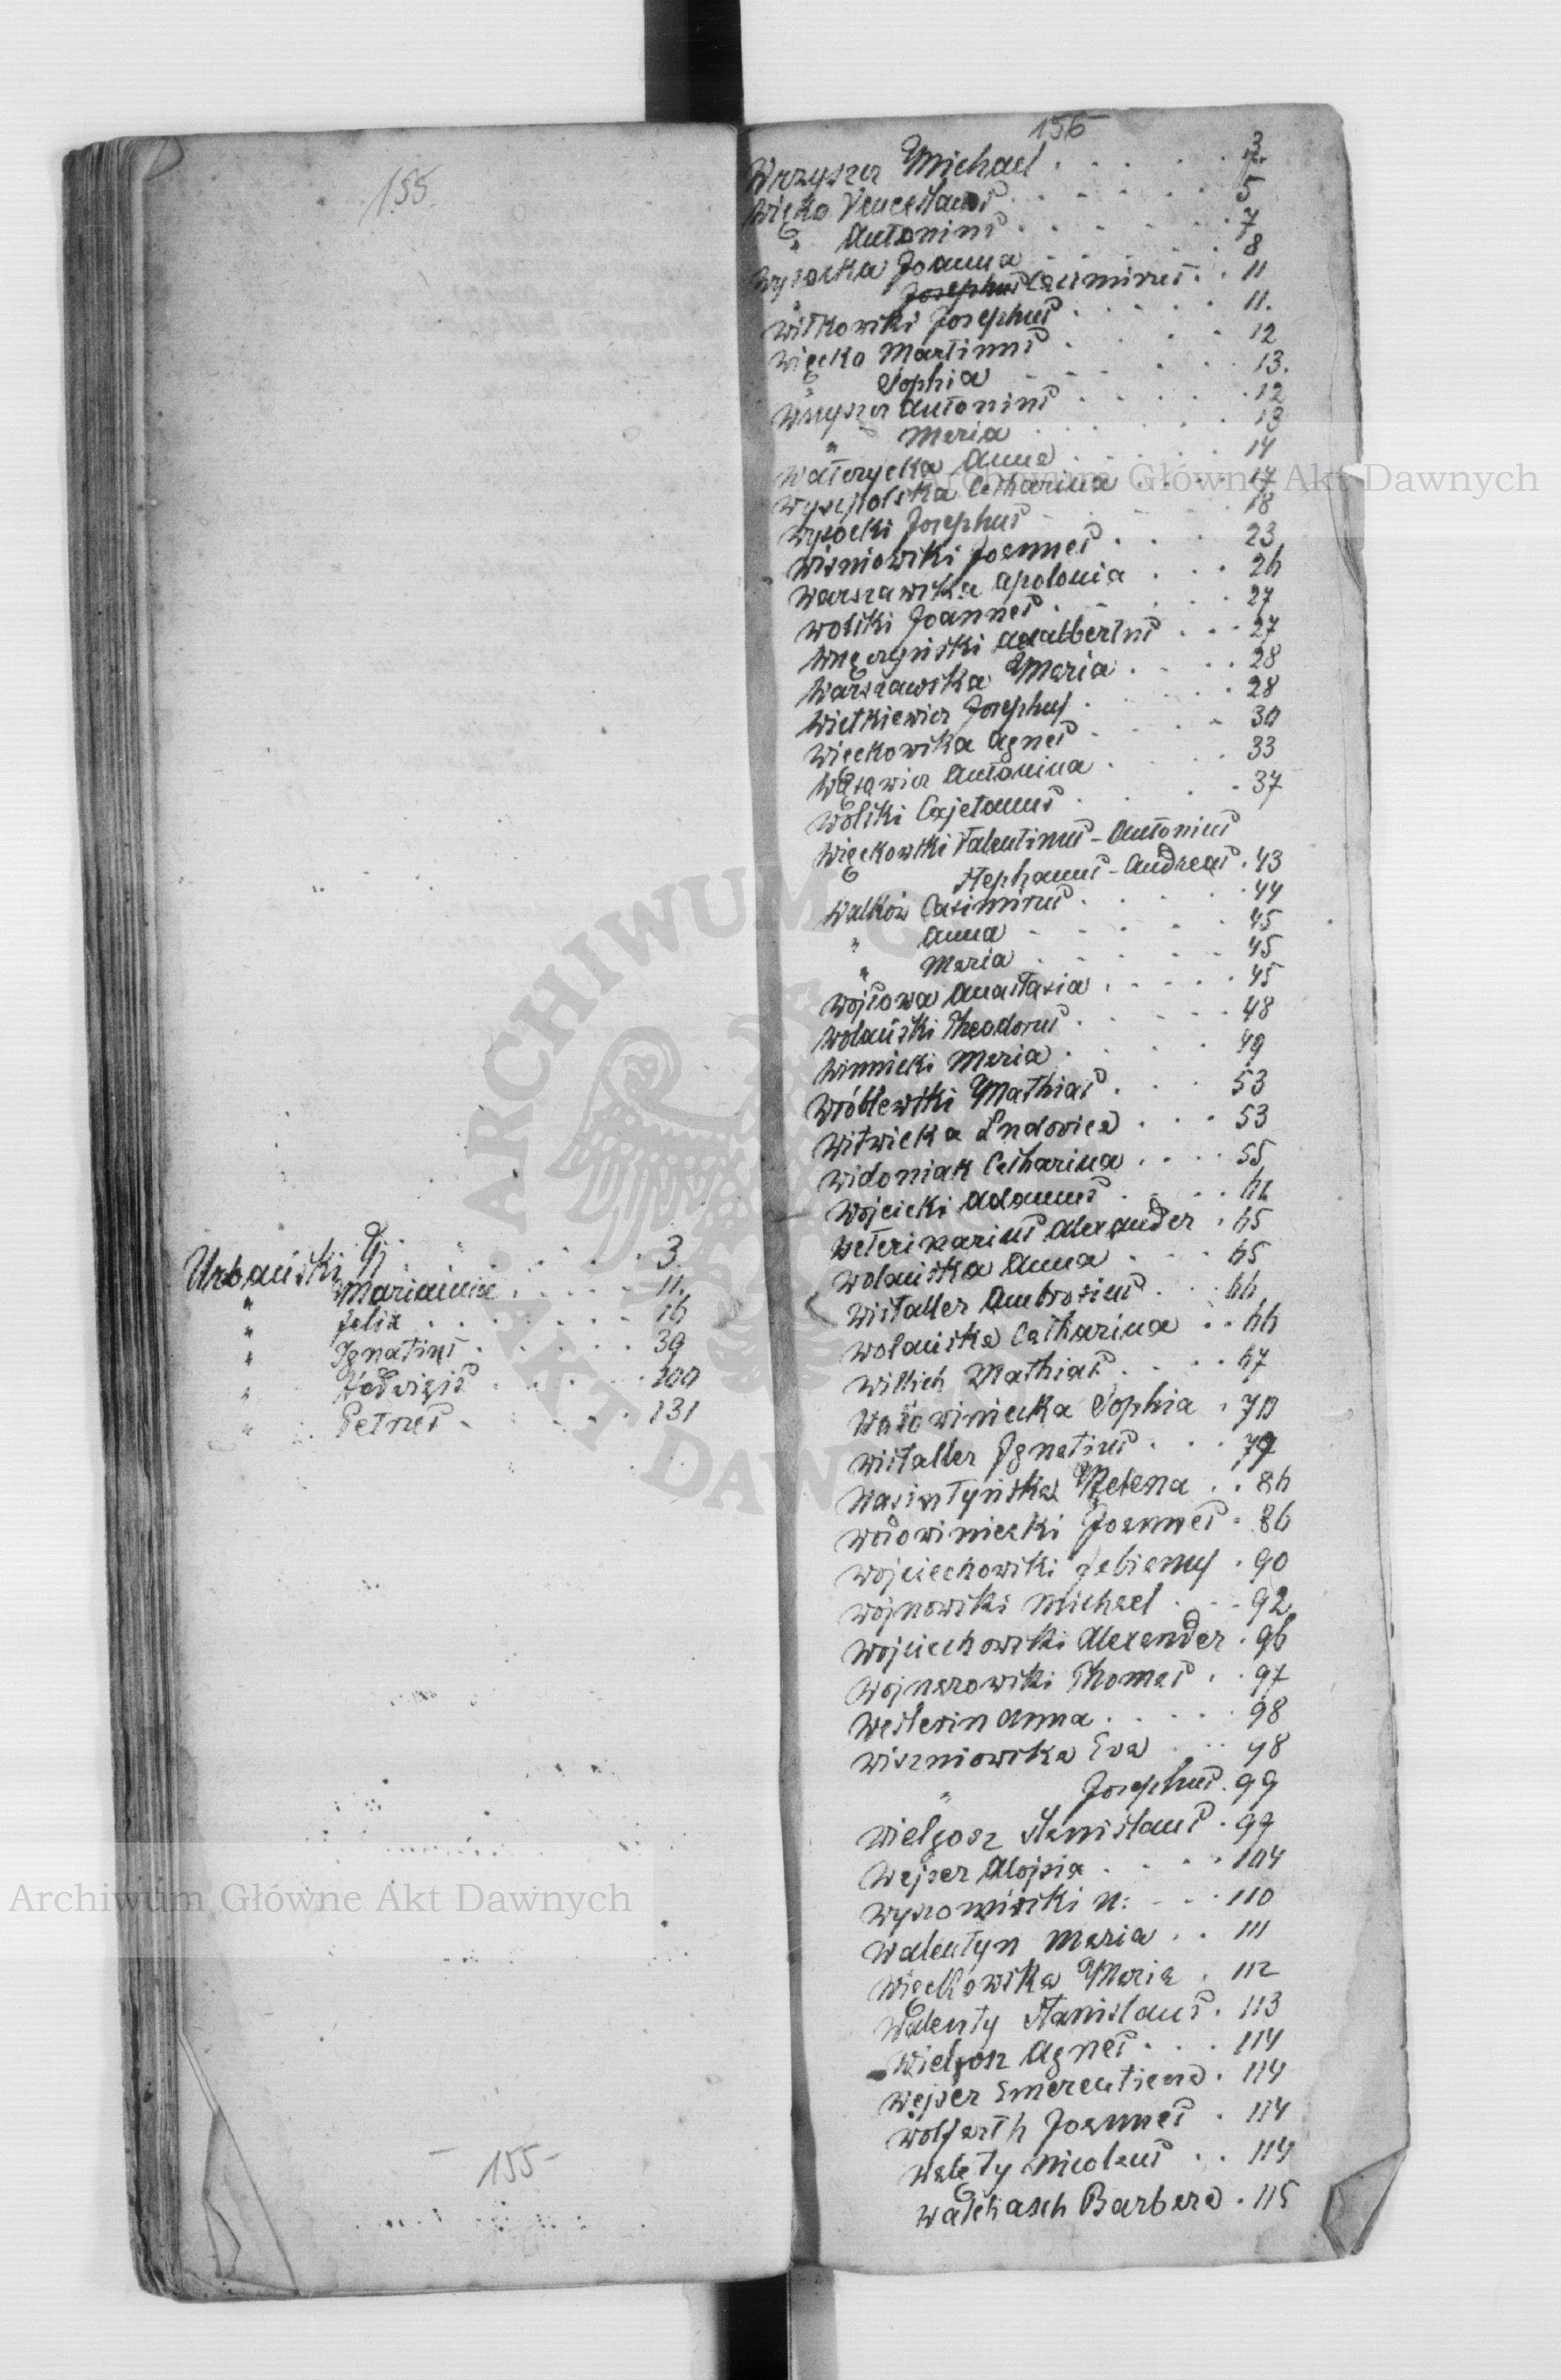 155
Urbański J. . . . . . . 3
" Marianna . . . . . 11.
" Felix . . . . . . . 16
" Ignatius . . . . . . 39
" Hedvigis . . . . . . 100
" Petrus . . . . . 131
- 155 -
156
Wrzyszcz Michael . . . . . 3
Więko Venceslaus . . . . . 5
" Antonius . . . . . . 7
Wysocka Joanna . . . . . 8
" Casimirus . . 11
Witkowski Josephus . . . . . 11.
Więcko Martinus . . . . 12
" Sophia . . . . . . 13.
Wrzyszcz Antonius . . . . . 12
" Maria . . . . . 13
Watorycka Anna . . . . . 14
Wyszpolska Catharina . . . . 17
Wysocki Josephus . . . . . 18
Wiśniowski Joannes . . . . 23
Warszawska Apolonia . . . 26
Wolski Joannes . . . . . . 27
Adalbertus . . . 27
Warszawska Maria . . . . 28
Wietkiewicz Josephus . . . . . 28
Więckowska Agnes . . . . 30
Wąsowicz Antonina . . . . 33
Wolski Cajetanus . . . . . 37
Więckowski Valentinus - Antonius
Stephanus - Andreas . 43
Walków Casimirus . . . . . 44
" Anna . . . . . . 45
" Maria . . . . . . 45
Wojtowa Anastasia . . . . . 45
Wolański Theodorus . . . . . 48
Winnicki Maria . . . . . 49
Wróblewski Mathias . . . 53
Witwicka Ludovica . . . 53
Widoniak Catharina . . . . 55
Wójcicki Adamus . . . . 62
Weterinarius Alexander . 65
Wolańska Anna . . . . 65
Wistaller Ambrosius . . . 66
Wolańska Catharina . . 66
Willich Mathias . . . . 67
Sophia . 70
Wistaller Ignatius . . . 79
Helena . . 86
Joannes . 86
Wojciechowski Fabianus . 90
Wójnowski Michael . . . 92
Wojciechowski Alexander . 96
Wojnarowski Thomas . . 97
Westerin Anna . . . . . 98
Wiszniowska Eva . . . 98
" Josephus . 99
Wielgosz Stanislaus . 99
Wejser Alojsia . . . . 104
N: . . . 110
Walentyn Maria . . 111
Więckowska Maria . 112
Walenty Stanislaus . 113
Wielgosz Agnes . . . 114
Wejser Emerentiana . 114
Wolfarth Joannes . 114
Walęty Nicolaus . . 114
Barbara . 115
Archiwum Główne Akt Dawnych
Archiwum Główne Akt Dawnych